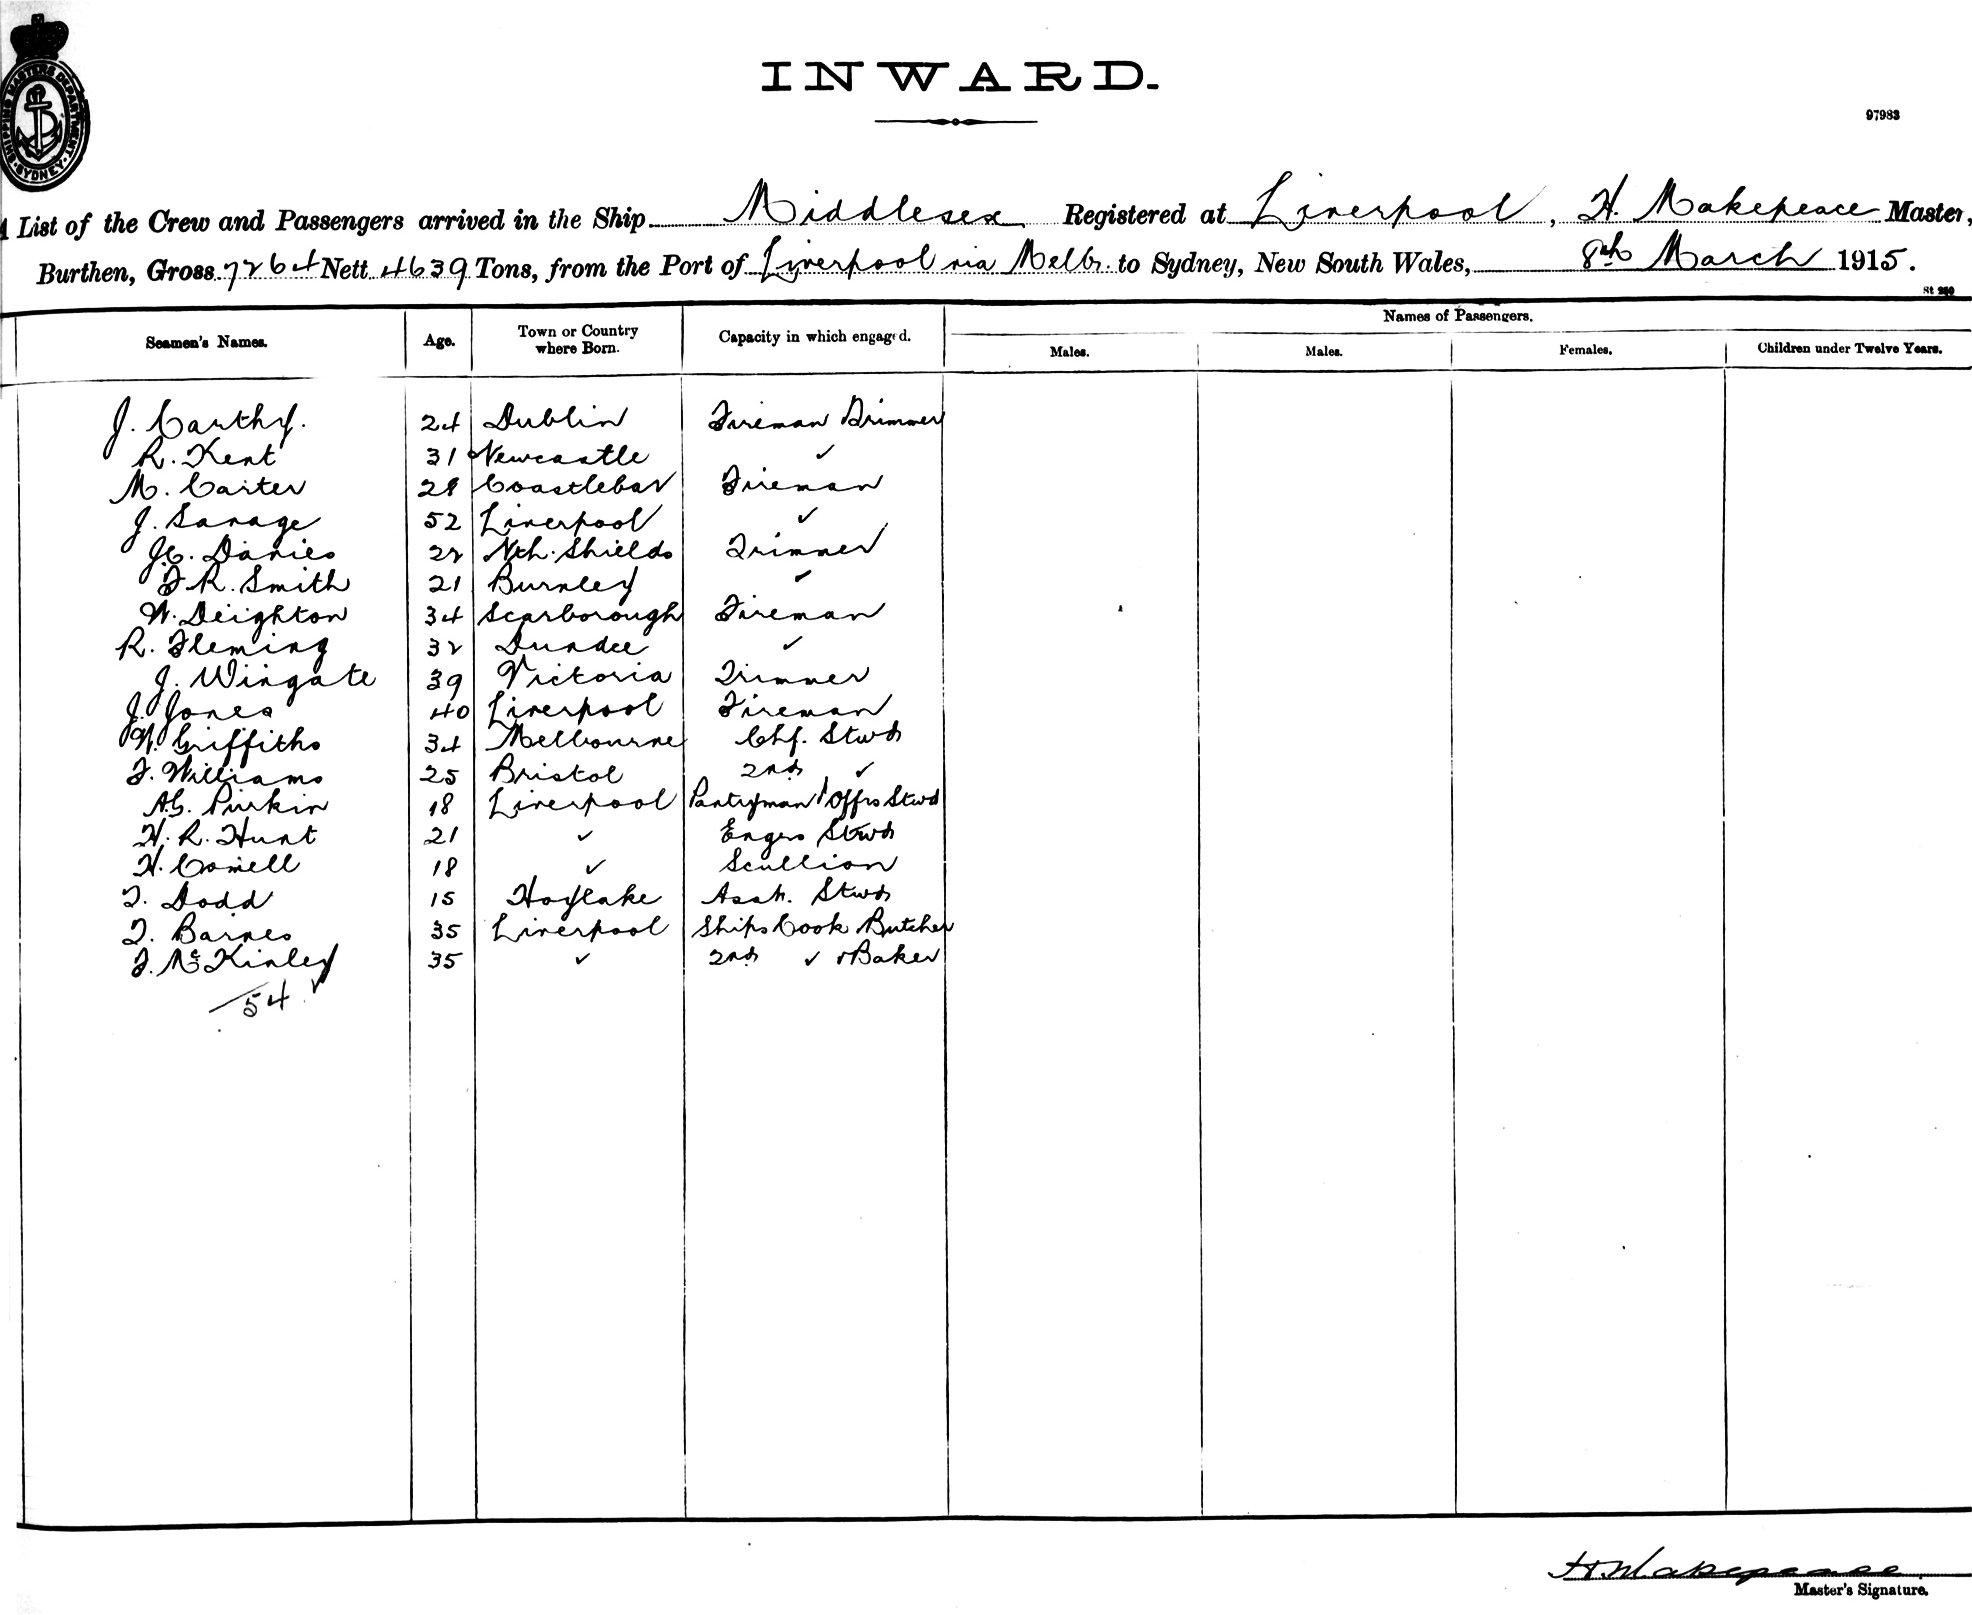 SHIPPING MASTERS DEPARTMENT · SYDNEY ·
INWARD.
97983
A List of the Crew and Passengers arrived in the Ship Middlesex Registered at Liverpool, H. Makepeace Master,
Burthen, Gross 7264 Nett 4639 Tons, from the Port of Liverpool via Melb. to Sydney, New South Wales, 8th March 1915.
St 290
Seamen's Names. Age. Town or Country where Born. Capacity in which engaged. Names of Passengers.
Males. Males. Females. Children under Twelve Years.
J. Carthy. 24 Dublin Fireman Trimmer
R. Kent 31 Newcastle ✓
M. Carter 29 Coastlebar Fireman
J. Savage 52 Liverpool ✓
J.C. Davies 22 Nth. Shields Trimmer
F. R. Smith 21 Burnley ✓
W. Deighton 34 Scarborough Fireman
R. Fleming 32 Dundee ✓
J. Wingate 39 Victoria Trimmer
J. Jones 40 Liverpool Fireman
W. Griffiths 34 Melbourne Chf. Stwd
F. Williams 25 Bristol 2nd ✓
A.G. Purkin 18 Liverpool Pantryman & Offrs Stwd
H. R. Hunt 21 ✓ Engrs Stwd
H. 18 ✓ Scullion
T. Dodd 15 Hoylake Asst. Stwd
T. Barnes 35 Liverpool Ships Cook Butcher
F. McKinley 35 ✓ 2nd ✓ & Baker
54 ✓
H. Makepeace
Master's Signature.